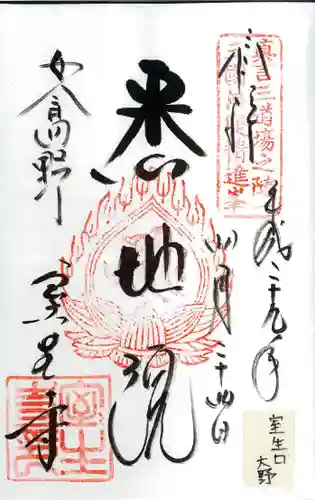 奉拝
平成二十九年
四月二十四日
悉地院
女人高野
室生寺
室生口
大野